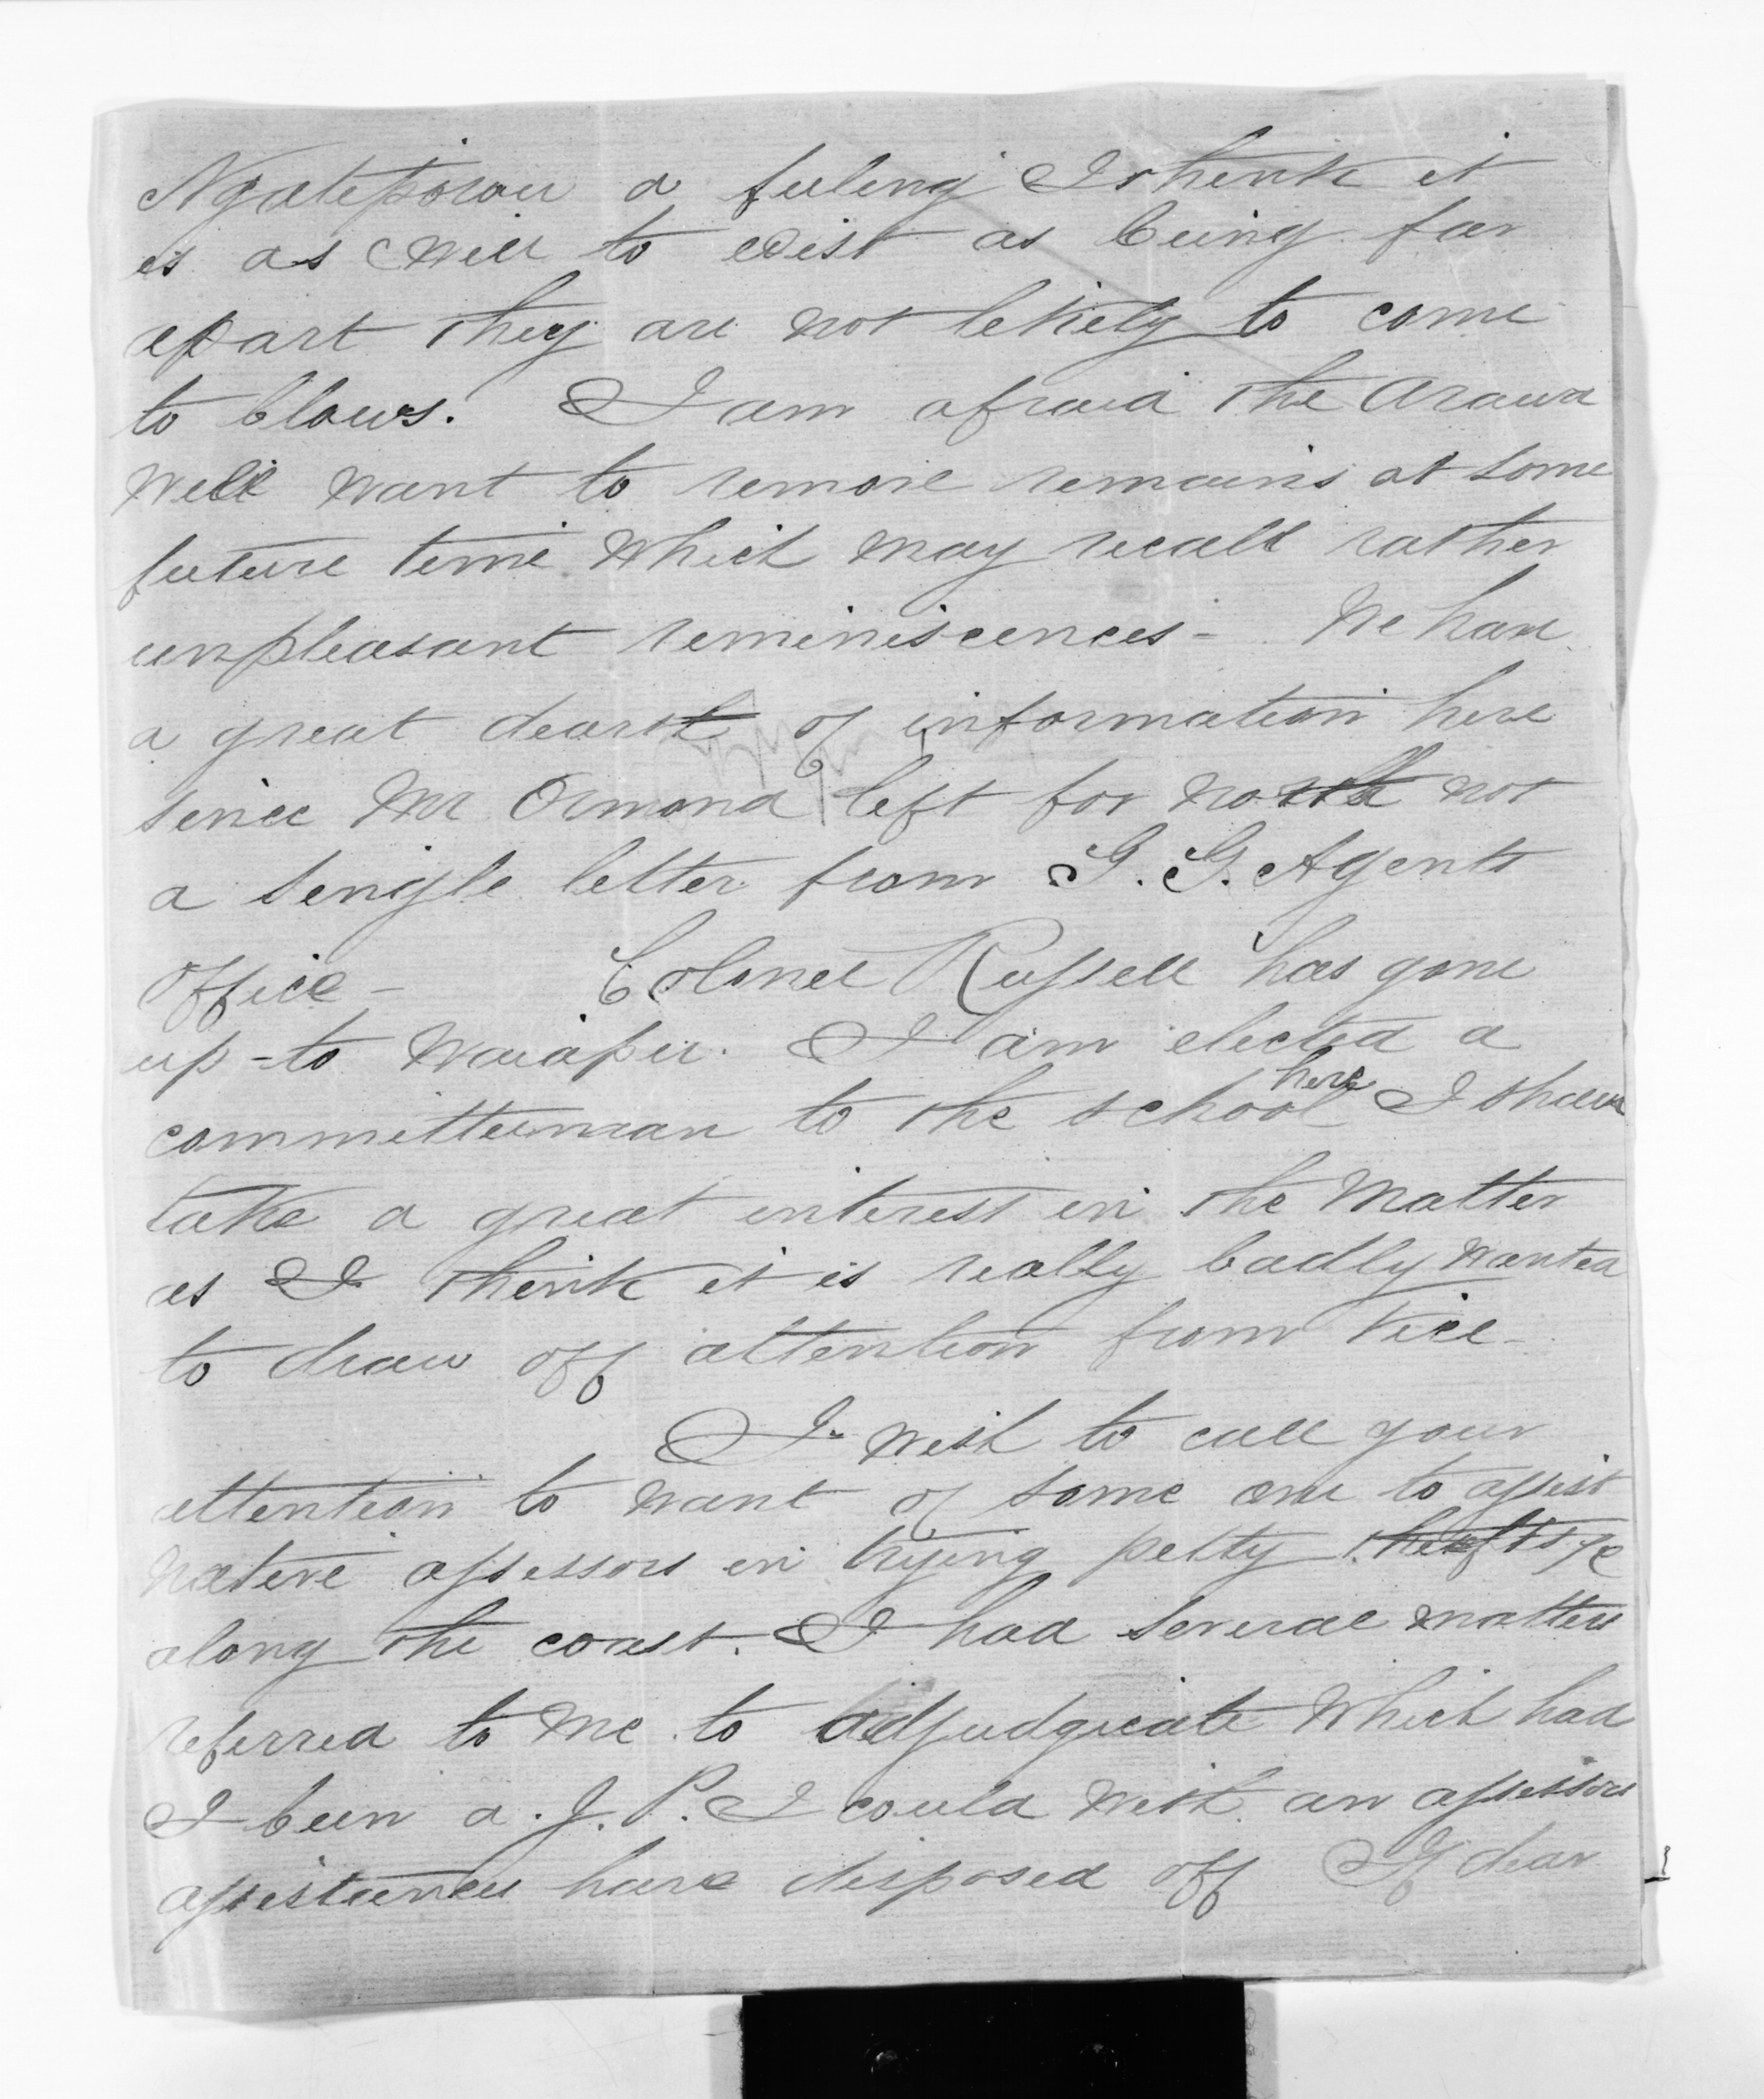 Ngateporou a feeling I think it
is as well to exist as being far
apart they are not likely to come
to blows. I am afraid the Arawa
will want to remove remains at some
future time which may recall rather
unpleasant reminiscences - We have
a great dearth of information here
since Mr Ormond left for north not
a single letter from G. G. Agents
office - Colonel Russell has gone
up-to Waiapu. I am elected a
committeeman to the school here I shall
take a great interest in the matter
as I think it is really badly wanted
to draw off attention from vice -
I wish to call your
attention to want of some one to assist
native assessors in trying petty thefts &c
along the coast. I had several matters
referred to me to adjudgicate which had
I been a J. P. I could with an assessors
assistance have disposed off If dear